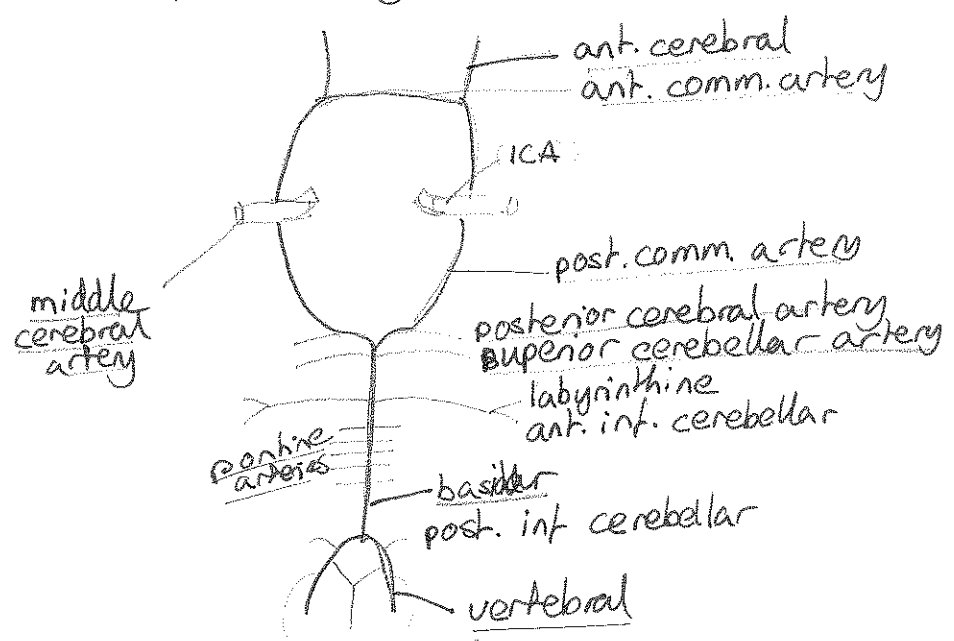 ant. cerebral
ant. comm. artery
ICA
post. comm. artery
middle
cerebral
artery
posterior cerebral artery
superior cerebellar artery
labyrinthine
ant. inf. cerebellar
pontine
arteries
basilar
post. inf cerebellar
vertebral